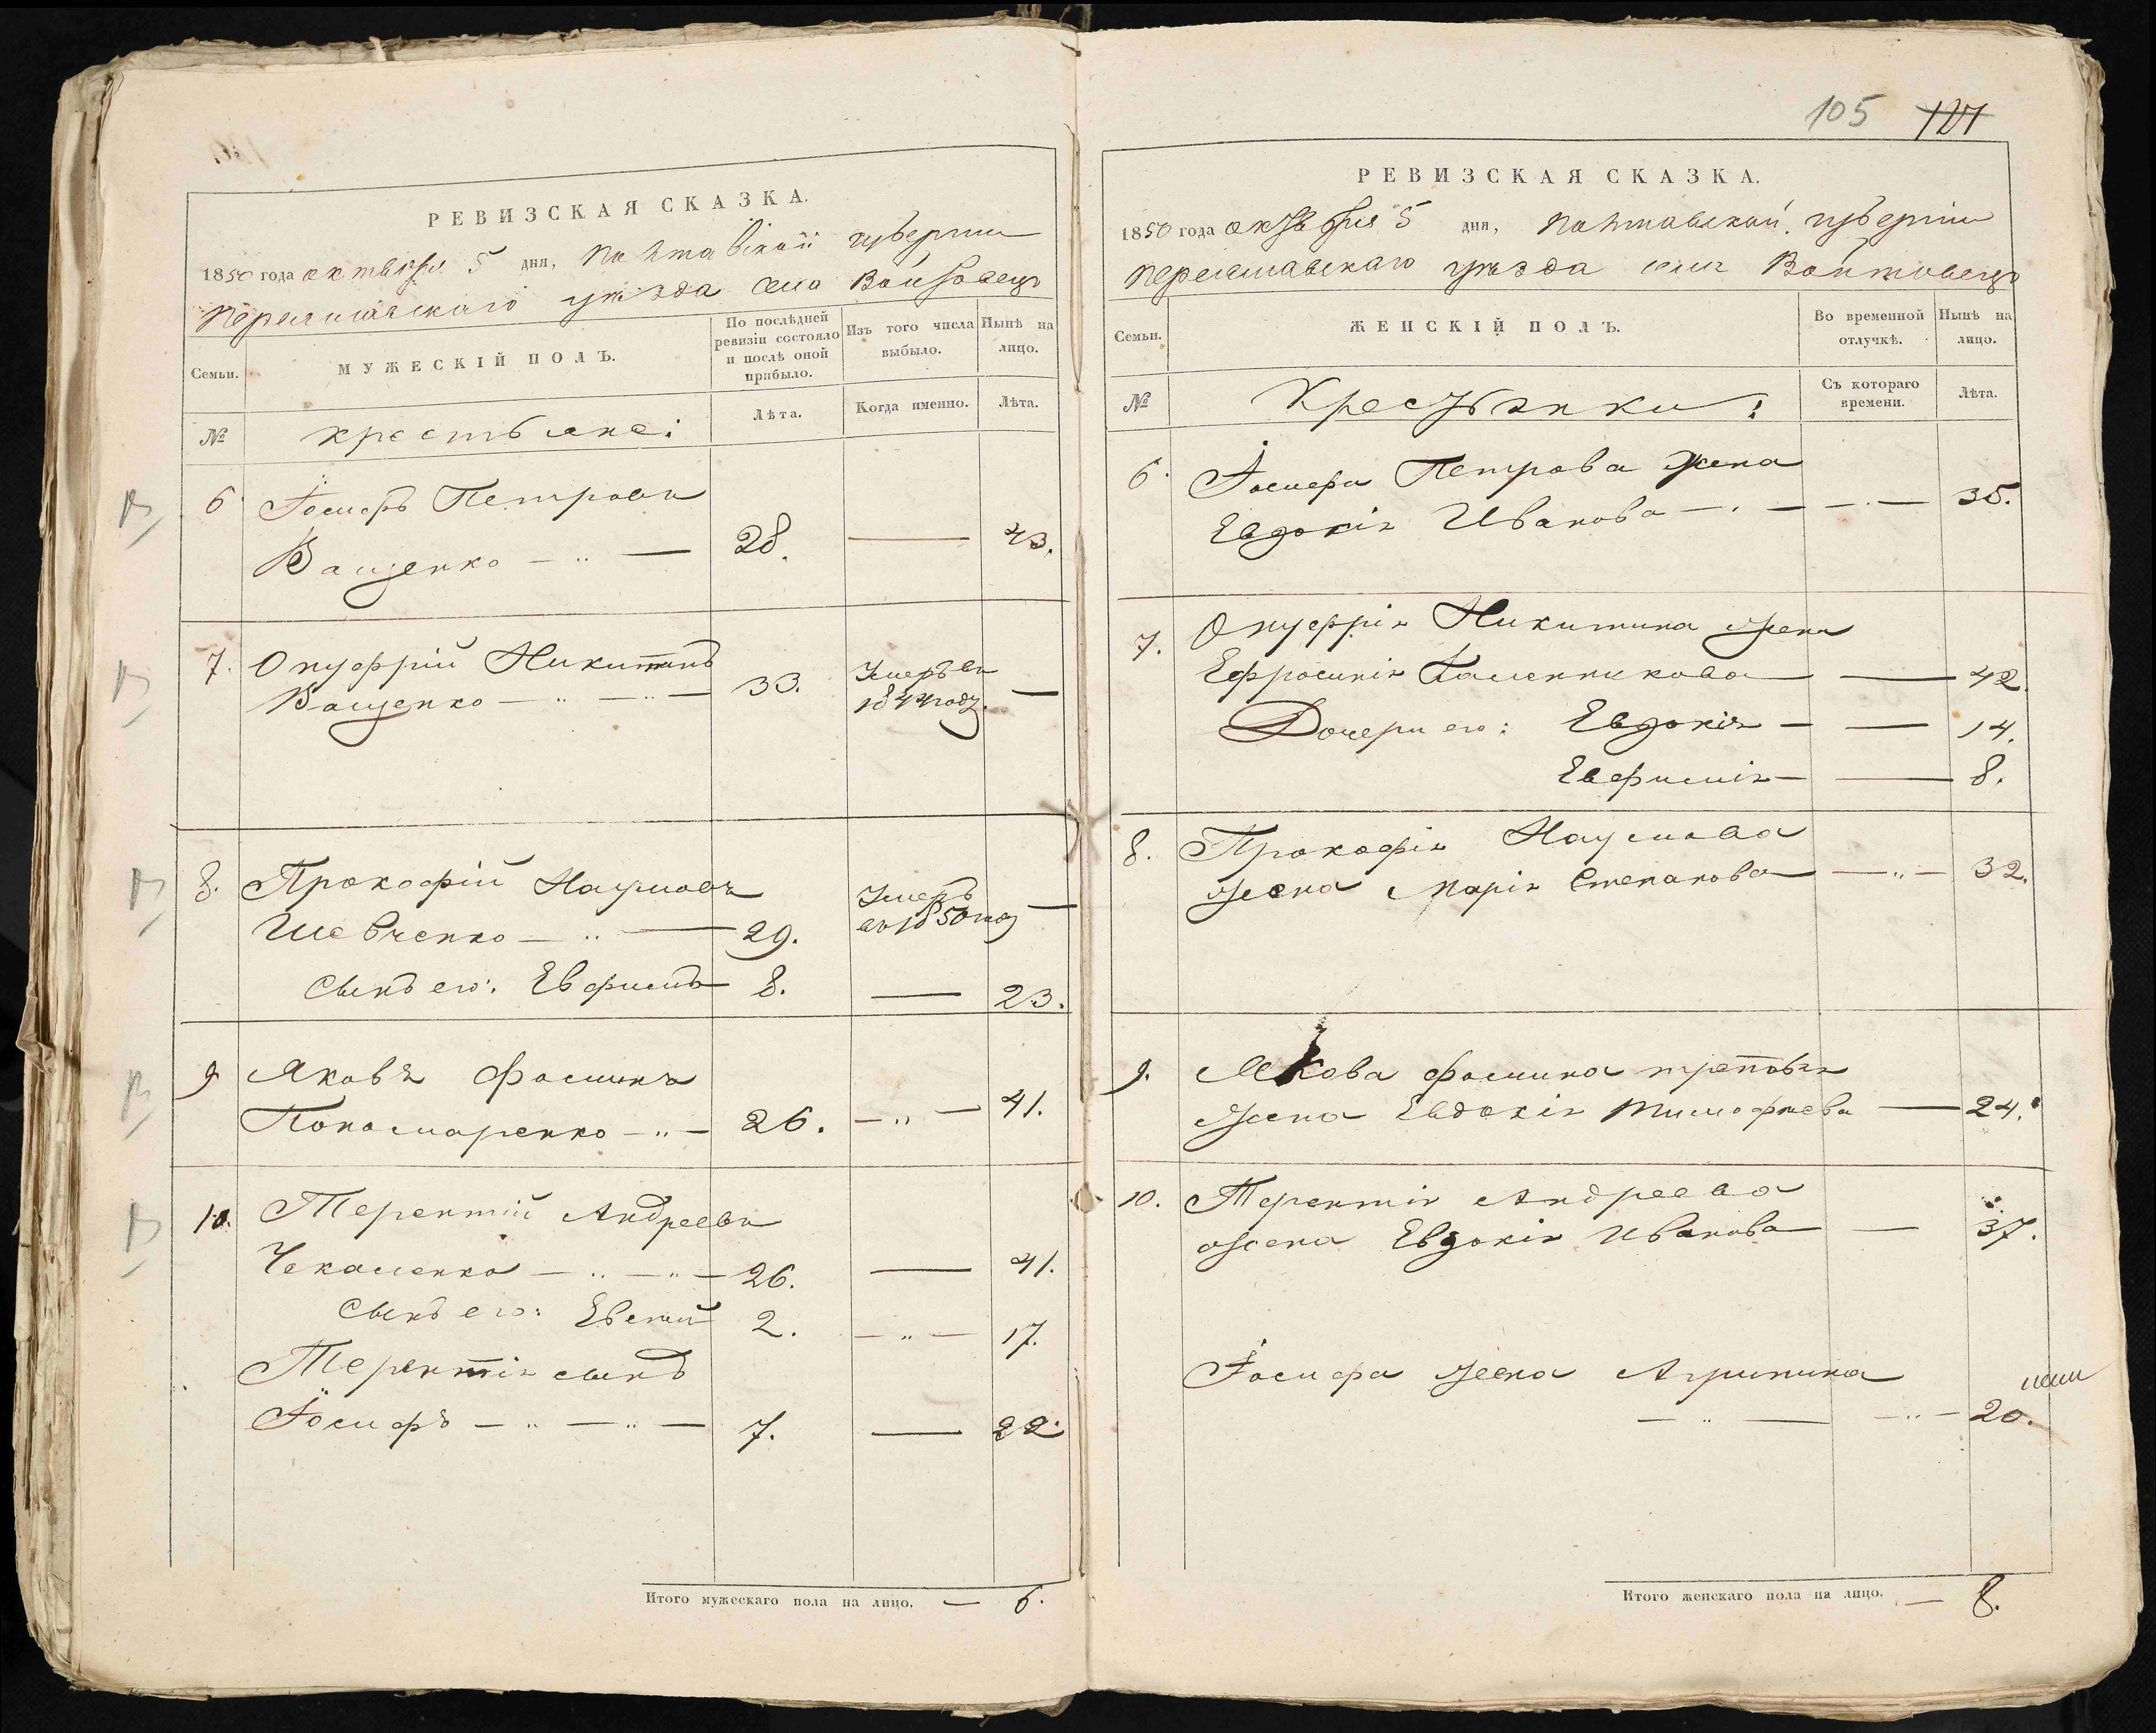 105 127
РЕВИЗСКАЯ СКАЗКА.
1850 года октября 5 дня, Полтавской губернии
Переяславскаго уѣзда села Войтовецъ
Семьи.
МУЖЕСКІЙ ПОЛЪ.
По послѣдней ревизіи состояло и послѣ оной прибыло.
Изъ того числа выбыло.
Нынѣ на лицо.
№
крестьяне:
Лѣта.
Когда именно.
Лѣта.
6 Іосифъ Петровъ
Ващенко — „ — 28. — 43.
7. Онуфрій Никитинъ Умеръ въ
Ващенко — „ — „ — 33. 1844 году. —
8. Прокофій Наумовъ Умеръ
Шевченко — „ — 29. въ 1850 году —
Сынъ его: Евфимъ 8. — 23.
9 Яковъ Фоминъ
Пономаренко — „ — 26. — „ — 41.
10. Терентій Андреевъ
Чекаленко — „ — „ — 26. — 41.
Сынъ его: 2. — „ — 17.
Терентія сынъ
Іосифъ — „ — „ — 7. — 22.
Итого мужескаго пола на лицо. — 6.
РЕВИЗСКАЯ СКАЗКА.
1850 года октября 5 дня, Полтавской губерніи
Переяславскаго уѣзда села Войтовецъ
Семьи.
ЖЕНСКІЙ ПОЛЪ.
Во временной отлучкѣ.
Нынѣ на лицо.
№
Крестьянки:
Съ котораго времени.
Лѣта.
6. Іосифа Петрова жена
Евдокія Иванова — . — — . — 35.
7. Онуфрія Никитина жена
Ефросинія — — 42.
Дочери его: Евдокія — — 14.
Евфимія — — 8.
8. Прокофія Наумова
жена Марія Степанова — „ — 32.
9. Якова Фомина третья
жена Евдокія Тимофѣева — 24.
10. Терентія Андреева
жена Евдокія Иванова — 37.
Іосифа жена Агрипина
— „ — — „ — 20.
Итого женскаго пола на лицо. — 8.